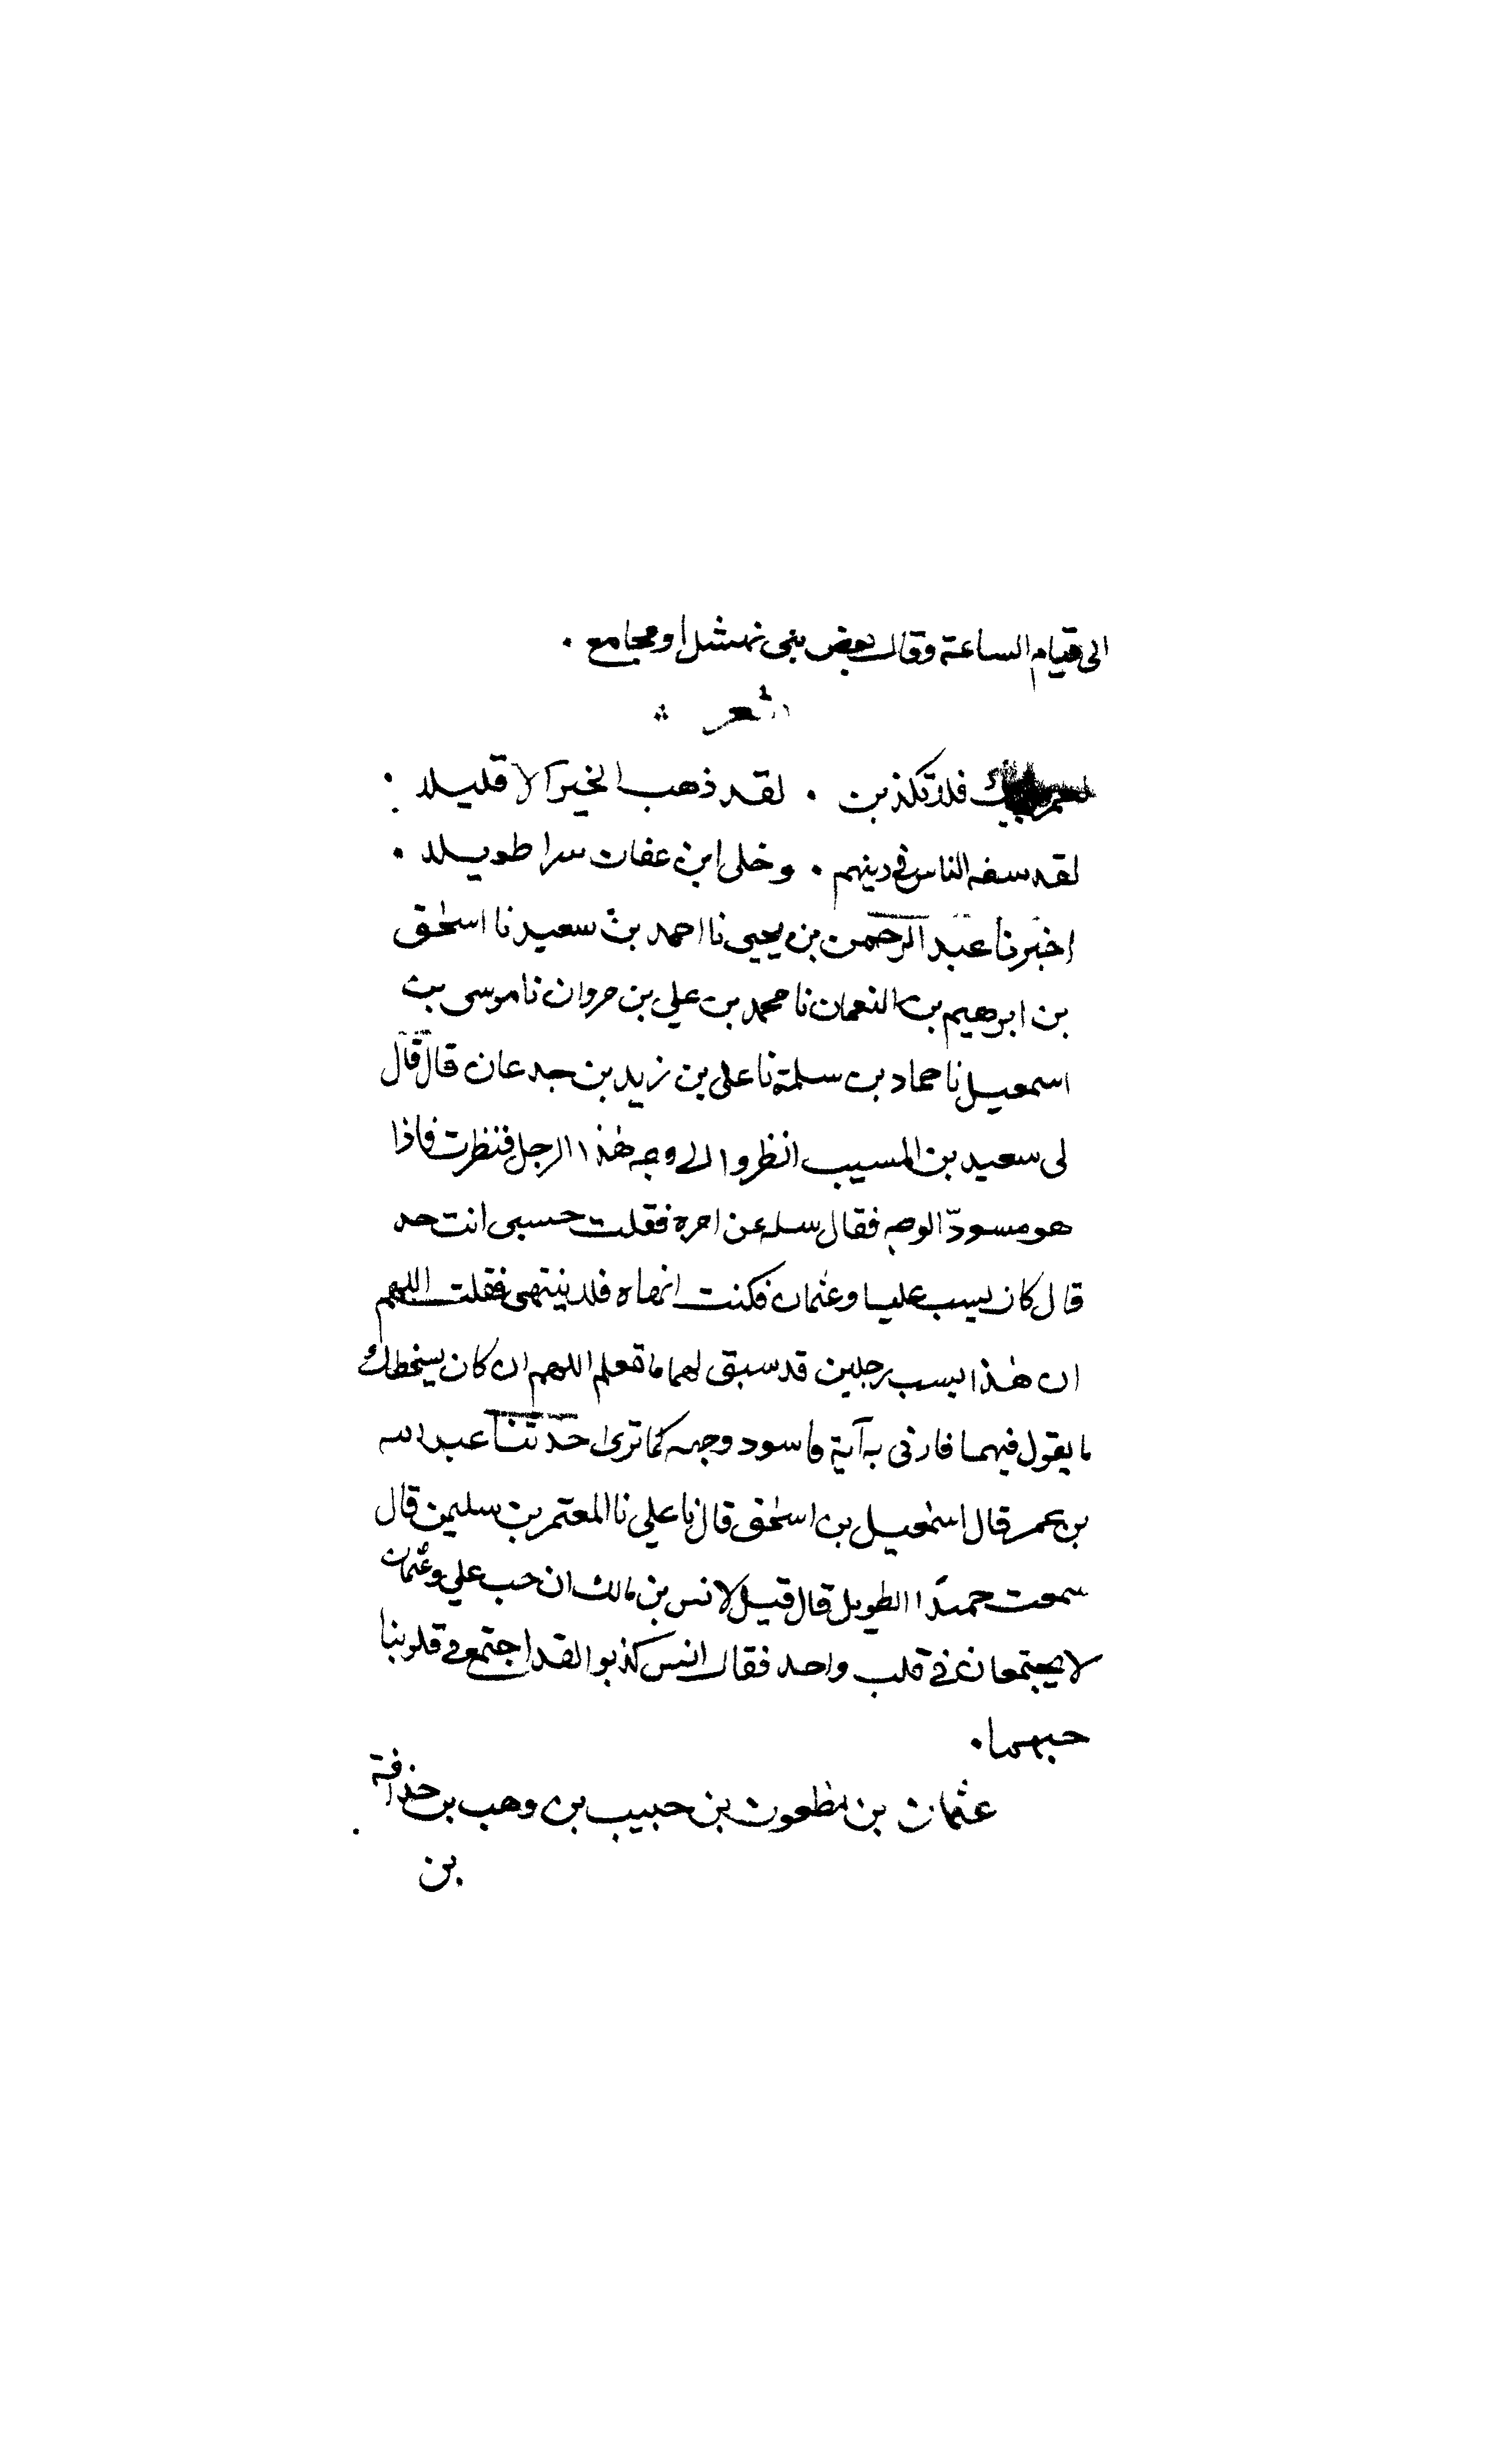 الى قيام الساعة وقال بعض بنى نهشل او مجامع ·
شعر
لعمر ابيك فلا تكذبن · لقد ذهب الخير الا قليلا ·
لقد سفه الناس في دينهم · وخلى ابن عفان سرا طويلا ·
اخبرنا عبد الرحمن بن يحيى نا احمد بن سعيد نا اسحٰق
بن ابرهيم بن النعمان نا محمد بن علي بن مروان نا موسى بن
اسمعيل نا حماد بن سلمة نا على بن زيد بن جدعان قال قال
لى سعيد بن المسيب انظروا الى وجه هٰذا الرجل فنظرت فاذا
هو مسودّ الوجه فقال سله عن امره فقلت حسبى انت حد
قال كان يسب عليا وعثمان فكنت انهاه فلا ينتهى فقلت اللهم
ان هٰذا يسب رجلين قد سبق لهما ما تعلم اللهم ان كان يسخطك
ما يقول فيهما فارنى به آية فاسود وجهه كما ترى حدثنا عبد الله
بن عمر قال اسمٰعيل بن اسحٰق قال نا علي نا المعتمر بن سليمن قال
سمعت حميدا الطويل قال قيل لانس بن مالك ان حب علي وعثمان
لا يجتمعان في قلب واحد فقال انس كذبوا لقد اجتمع في قلوبنا
حبهما ·
عثمان بن مظعون بن حبيب بن وهب بن حذافة
بن